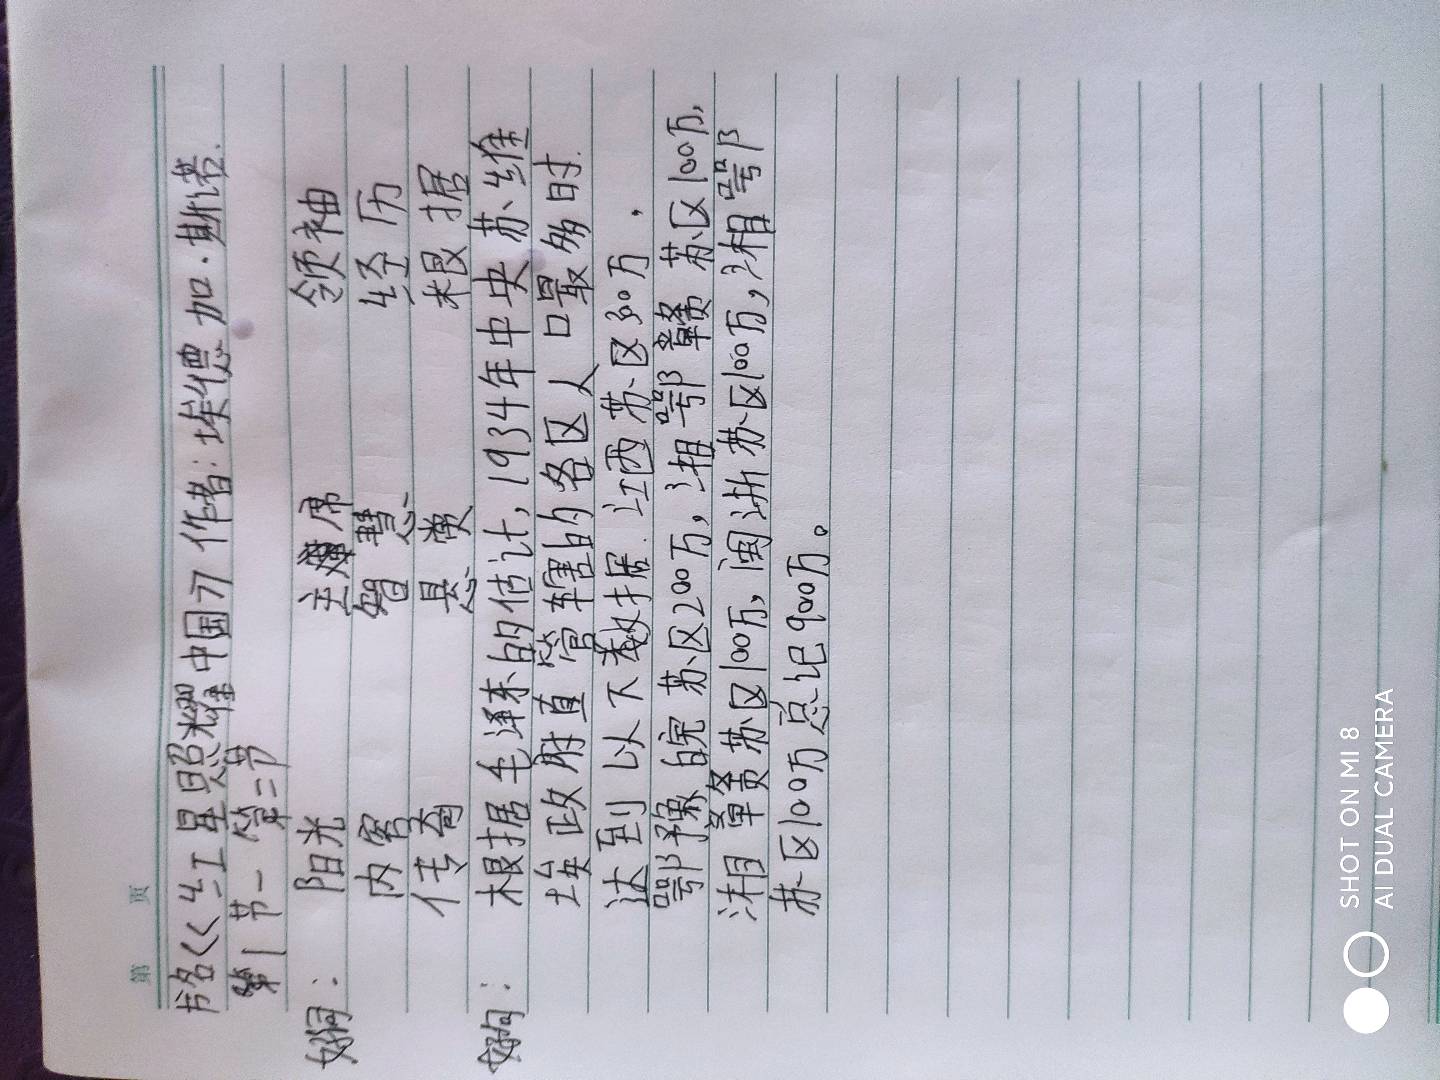 第 页
书名《《红星照耀中国》》作者:埃德加·斯诺.
第1节一第二节
好词: 阳光 主席 领袖
内容 智慧 经历
传奇 悬赏 根据
好句: 根据毛泽东的估计,1934年中央苏维
埃政府直管辖的各区人口最多时.
达到以下数据.江西苏区300万,
鄂豫皖苏区200万,湘鄂赣苏区100万,
湘赣苏区100万,闽浙苏区100万,湘鄂
苏区100万总记900万。
SHOT ON MI 8
AI DUAL CAMERA